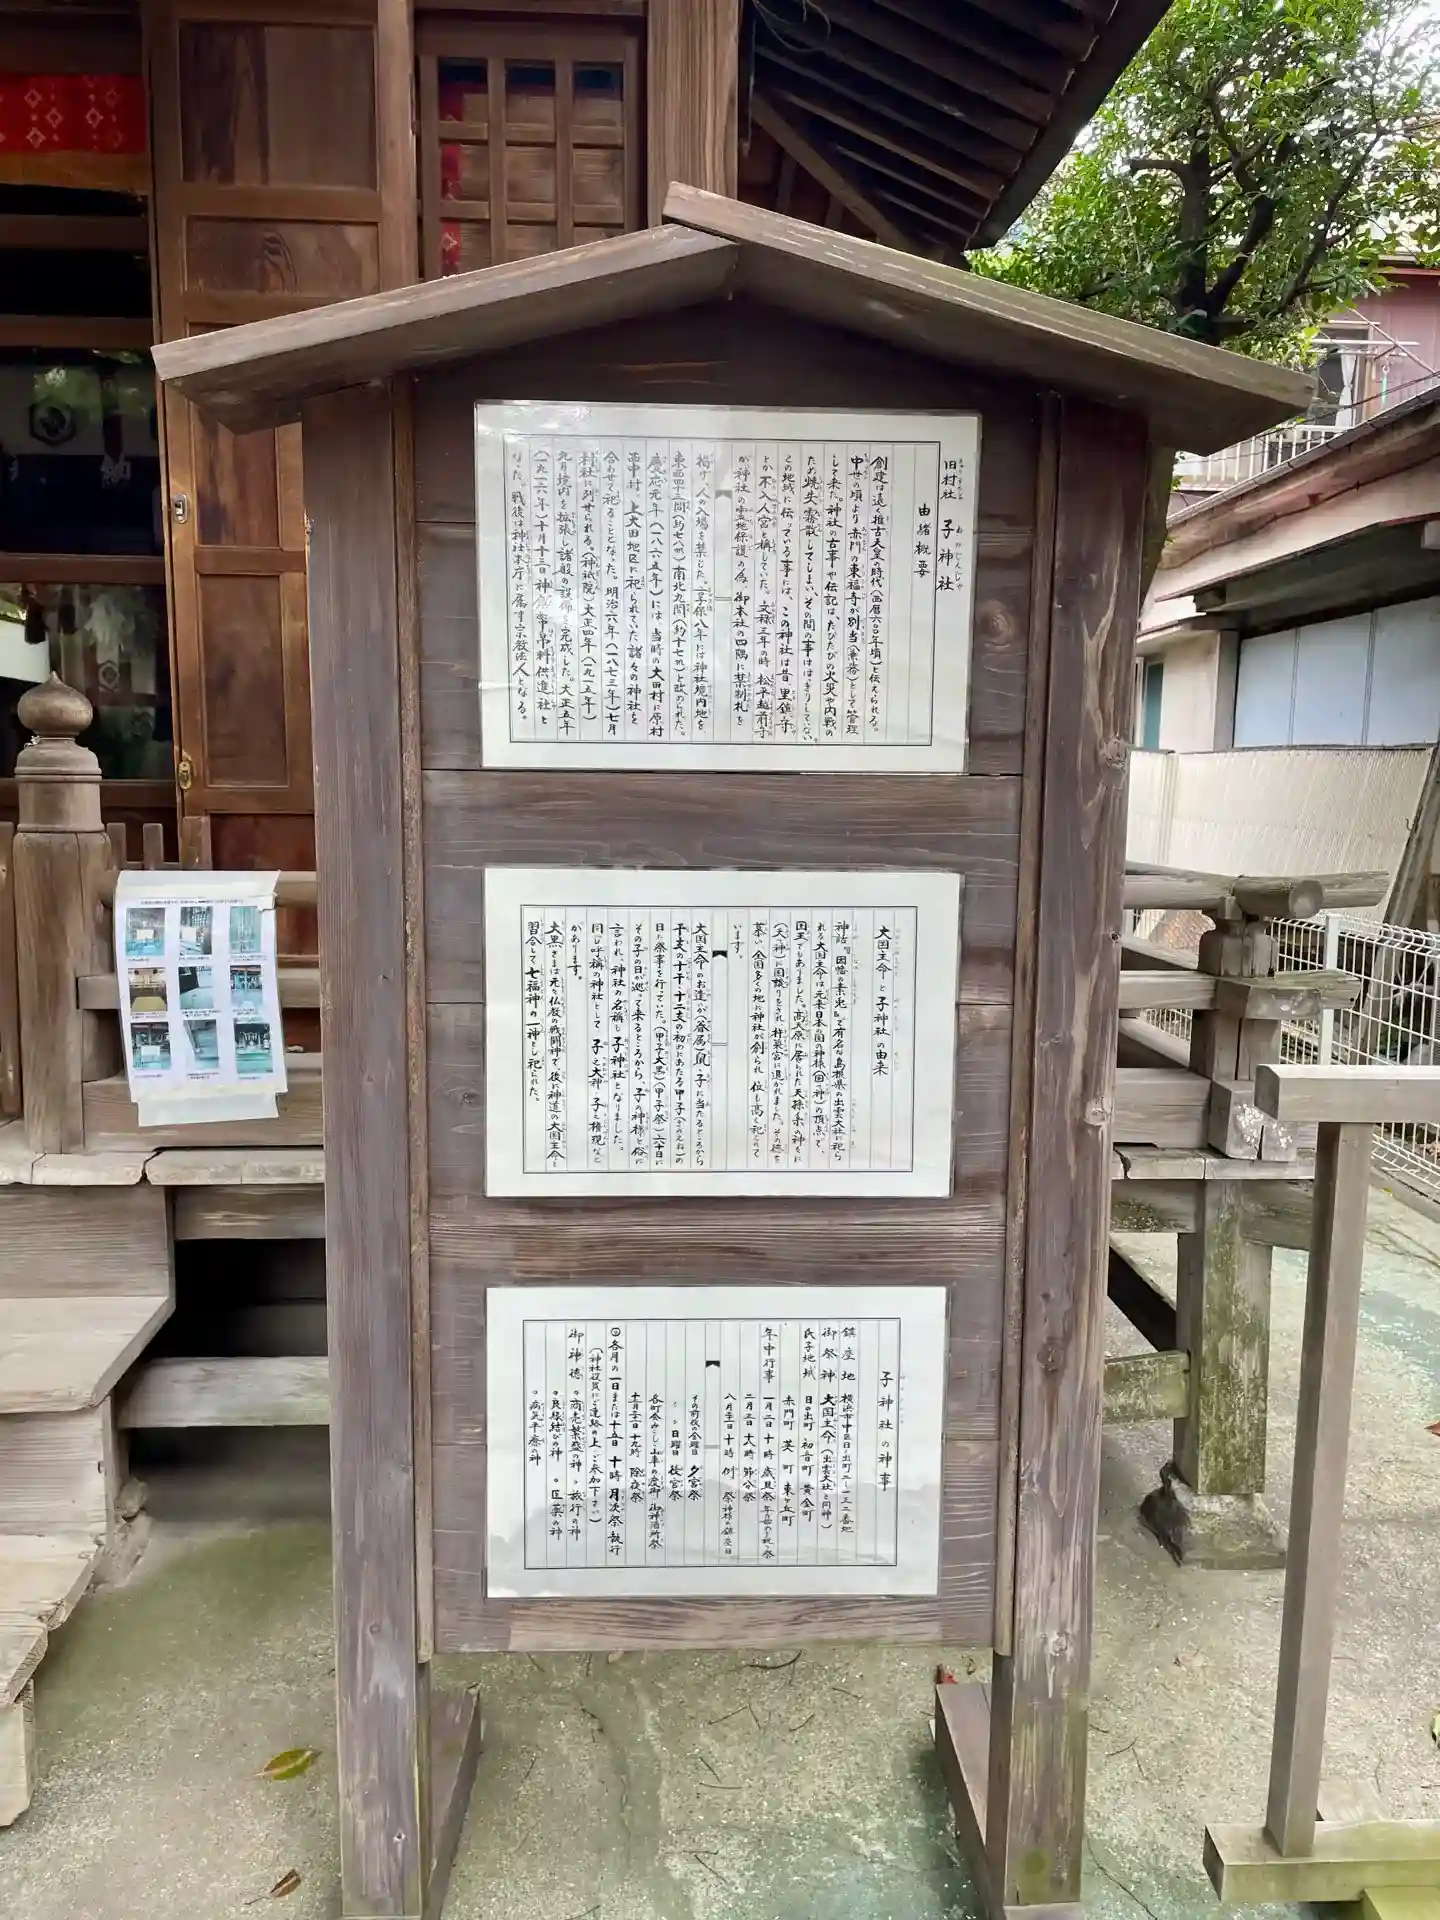 旧村社 子神社
由緒概要
創建は遠く推古天皇の時代(西暦六〇〇年頃)と伝えられる。
中世の頃より赤門の東福寺が別当(兼務)として管理
して来た。神社の古事や伝記は、たびたびの火災や内戦の
ため焼失霧散してしまい、その間の事ははっきりしていない。
この地域に伝っている事には、この神社は昔 里鎮守
とか不入人宮と称していた。文禄三年の時 松平越前守
が神社の霊地保護の為、御本社の四隅に禁制札を
掲げ、人の入場を禁じた。享保八年には神社境内地を
東西四十三間(約七八㍍)南北九間(約十七㍍)と改められた。
慶応元年(一八六五年)には、当時の大田村に原村
西中村、上大田地区に祀られていた諸々の神社を
合わせて祀ることとなった。明治六年(一八七三年)七月
村社に列せられる。(神祇院)大正四年(一九一五年)
九月境内を拡張し諸般の設備を完成した。大正五年
(一九一六年)十月十三日神饌幣帛料供進社と
なった。戦後は神社本庁に属す宗教法人となる。
大国主命と子神社の由来
神話『因幡の素兎』で有名な島根県の出雲大社に祀ら
れる大国主命は元来日本の国の神様(国つ神)の頂点で、
国王でもありました。高天原に居られた天孫系の神々に
(天つ神)に国譲りをされ 杵築宮に退かれました。その徳を
慕い全国多くの地に神社が創られ 位も高く祀られて
います。
大国主命のお遣いが(眷属)鼠・子に当たるところから
干支の十干・十二支の初めにあたる甲子(きのえね)の
日に祭事を行っていた。(甲子大黒)(甲子祭)六十日に
その子の日が巡って来るところから、子の神様と俗に
言われ、神社の名称も 子神社となりました。
同じ呼称の神社として 子之大神・子之権現など
があります。
大黒さまは元々仏教の戦闘神で、後に神道の大国主命と
習合して七福神の一神とし祀られた。
子神社の神事
鎮座地 横浜市中区日ノ出町二ー一三二番地
御祭神 大国主命(出雲大社と同神)
氏子地域 日の出町 初音町 黄金町
赤門町 英町 東ヶ丘町
年中行事 一月一日 十時 歳旦祭 年の始めの祝い祭
二月三日 六時 節分祭
八月三一日 十時 例祭 神様の鎮座日
その前後の金曜日 夕宮祭
〃 〃 日曜日 枝宮祭
各町会みこし、山車の渡御 御神酒所祭
十二月三一日 十九時 除夜祭
◎各月の一日または十五日 十時 月次祭 執行
(神社役員にご連絡の上、ご参加下さい)
御神徳 ○商売繁盛の神 ○旅行の神
○良縁結びの神 ○医薬の神
○病気平癒の神